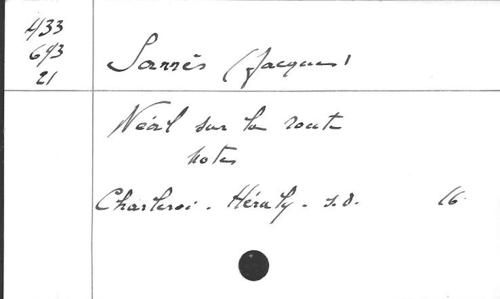 433
693
21
Sarrès (Jacques)
Néol sur la route
notes
Charleroi - Héraly - s.d. 16